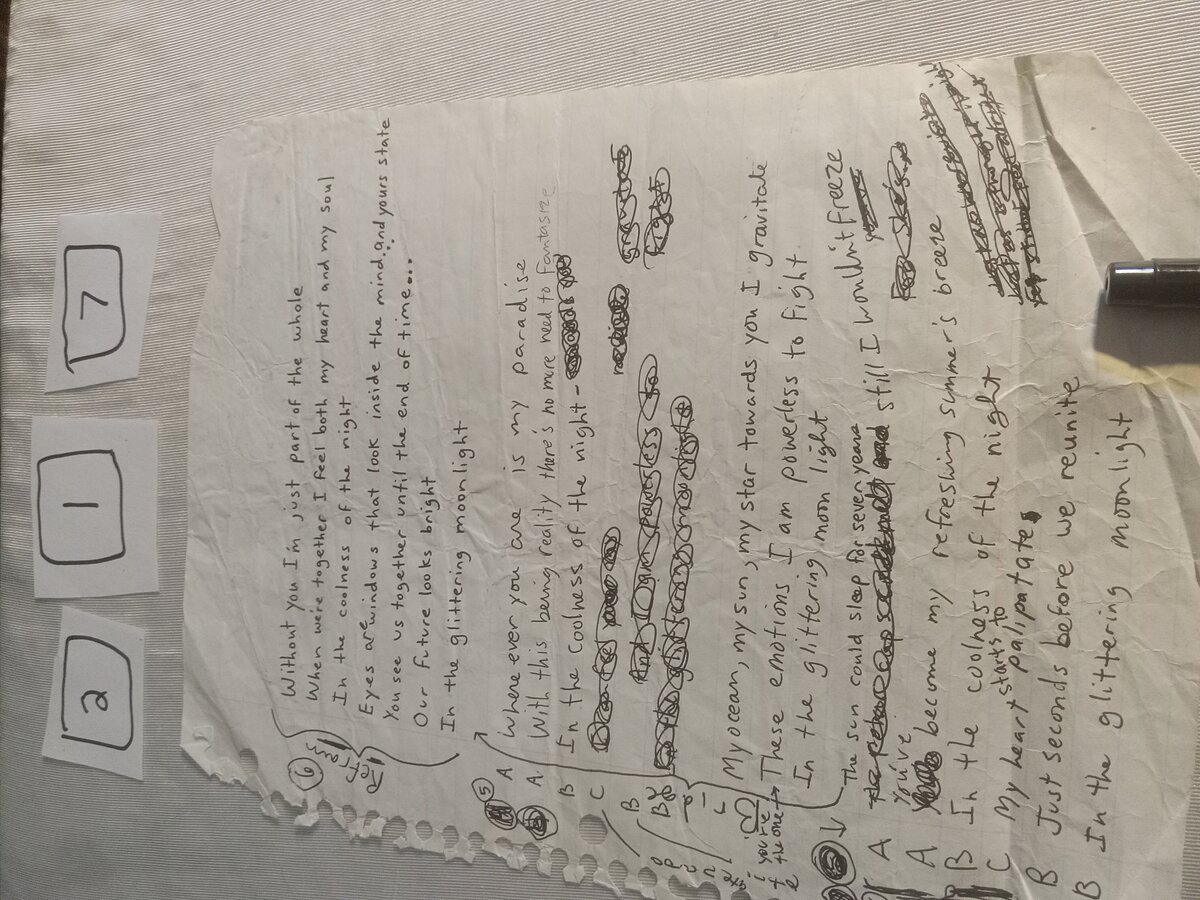 2
1
7
6
Without you I'm just part of the whole
When we're together I feel both my heart and my soul
In the coolness of the night
Eyes are windows that look inside the mind, and yours state
You see us together until the end of time...
Our future looks bright
In the glittering moonlight
5
A Where ever you are is my paradise
A With this being reality there's no more need to fantasize
B In the coolness of the night -
C
B
B
My ocean, my sun, my star towards you I gravitate
you're the one → These emotions I am powerless to fight
In the glittering moon light
The sun could sleep for seven years still I wouldn't freeze
A
A You've become my refreshing summer's breeze
B In the coolness of the night
C My heart starts to palipitate
B Just seconds before we reunite
B In the glittering moonlight